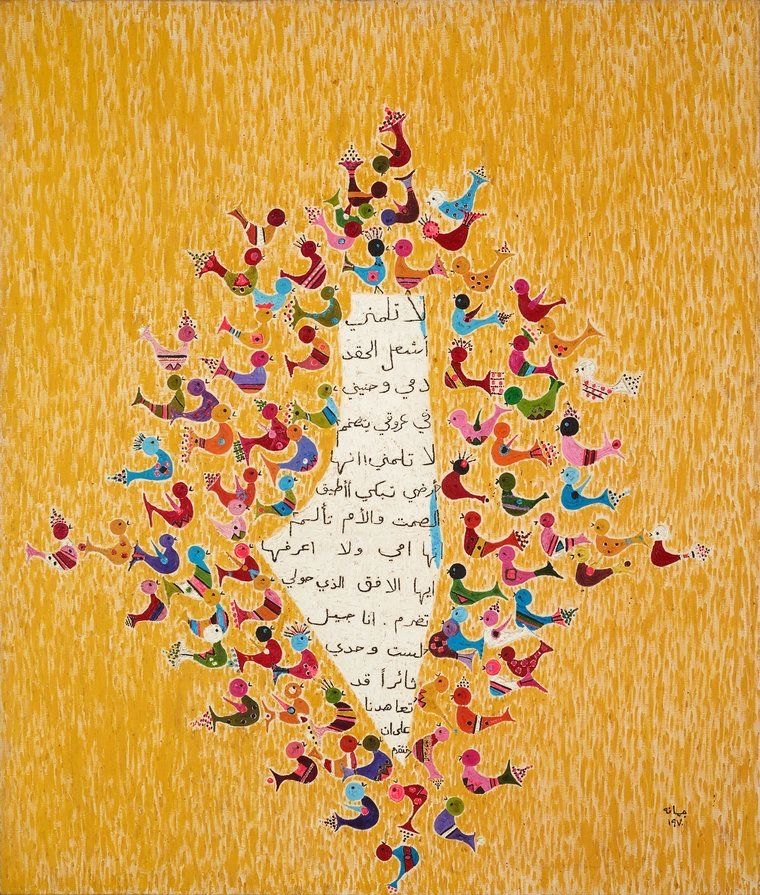 لا تلمني
أشعل الحقد
دمي وحنيني
في عروقي يتضخم
لا تلمني! انها
ارضي تبكي أأطيق
الصمت والأم تألم
انها امي ولا اعرفها
ايها الافق الذي حولي
تضرم . انا جيل
لست وحدي
ثائراً قد
تعاهدنا
على ان
جمانه
١٩٧٠